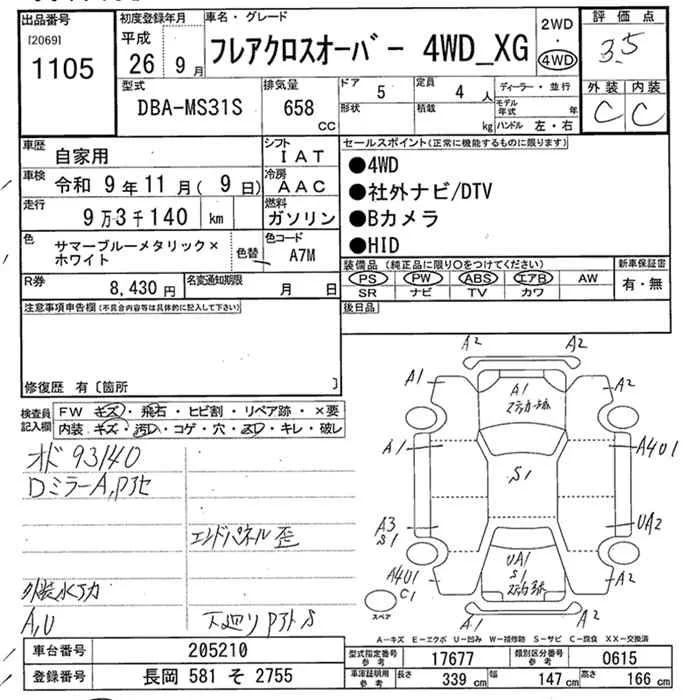 出品番号
[2069]
1105
初度登録年月
平成
26 9月
車名・グレード
フレアクロスオーバー 4WD_XG
2WD
・
4WD
評価点
3.5
外装 内装
C C
型式
DBA-MS31S
排気量
658
CC
ドア
5
形状
定員
4人
積載
kg
ディーラー・並行
モデル年式 年
ハンドル 左・右
車歴
自家用
シフト
IAT
車検
令和 9年11月( 9日)
冷房
AAC
走行
9万3千140 km
燃料
ガソリン
色
サマーブルーメタリック×
ホワイト
色替
色コード
A7M
R券
8,430円
名変通知期限
月 日
セールスポイント(正常に機能するものに限ります)
●4WD
●社外ナビ/DTV
●Bカメラ
●HID
装備品(純正品に限り○をつけてください)
PS PW ABS エアB AW
SR ナビ TV カワ
新車保証書
有・無
後日品
注意事項申告欄(不具合内容等は具体的に記入して下さい)
修復歴 有〔箇所 〕
検査員
記入欄
FW キズ・飛石・ヒビ割・リペア跡・×要
内装 キズ・汚れ・コゲ・穴・凹・キレ・破レ
オド 93140
DミラーA,Pアセ
エンドパネル歪
外装水アカ
A,U
下廻りPアトS
A2 A2
A1
A1
A2
A1
S1
A4U1
A3
S1
UA2
UA1
S1
A4U1
C1
A2
A1
A2
スペア
A―キズ E―エクボ U―凹み W―補修跡 S―サビ C―腐食 XX―交換済
車台番号
205210
登録番号
長岡 581 そ 2755
型式指定番号
参考
17677
類別区分番号
参考
0615
車庫証明用
参考
長さ
339 cm
幅
147 cm
高さ
166 cm